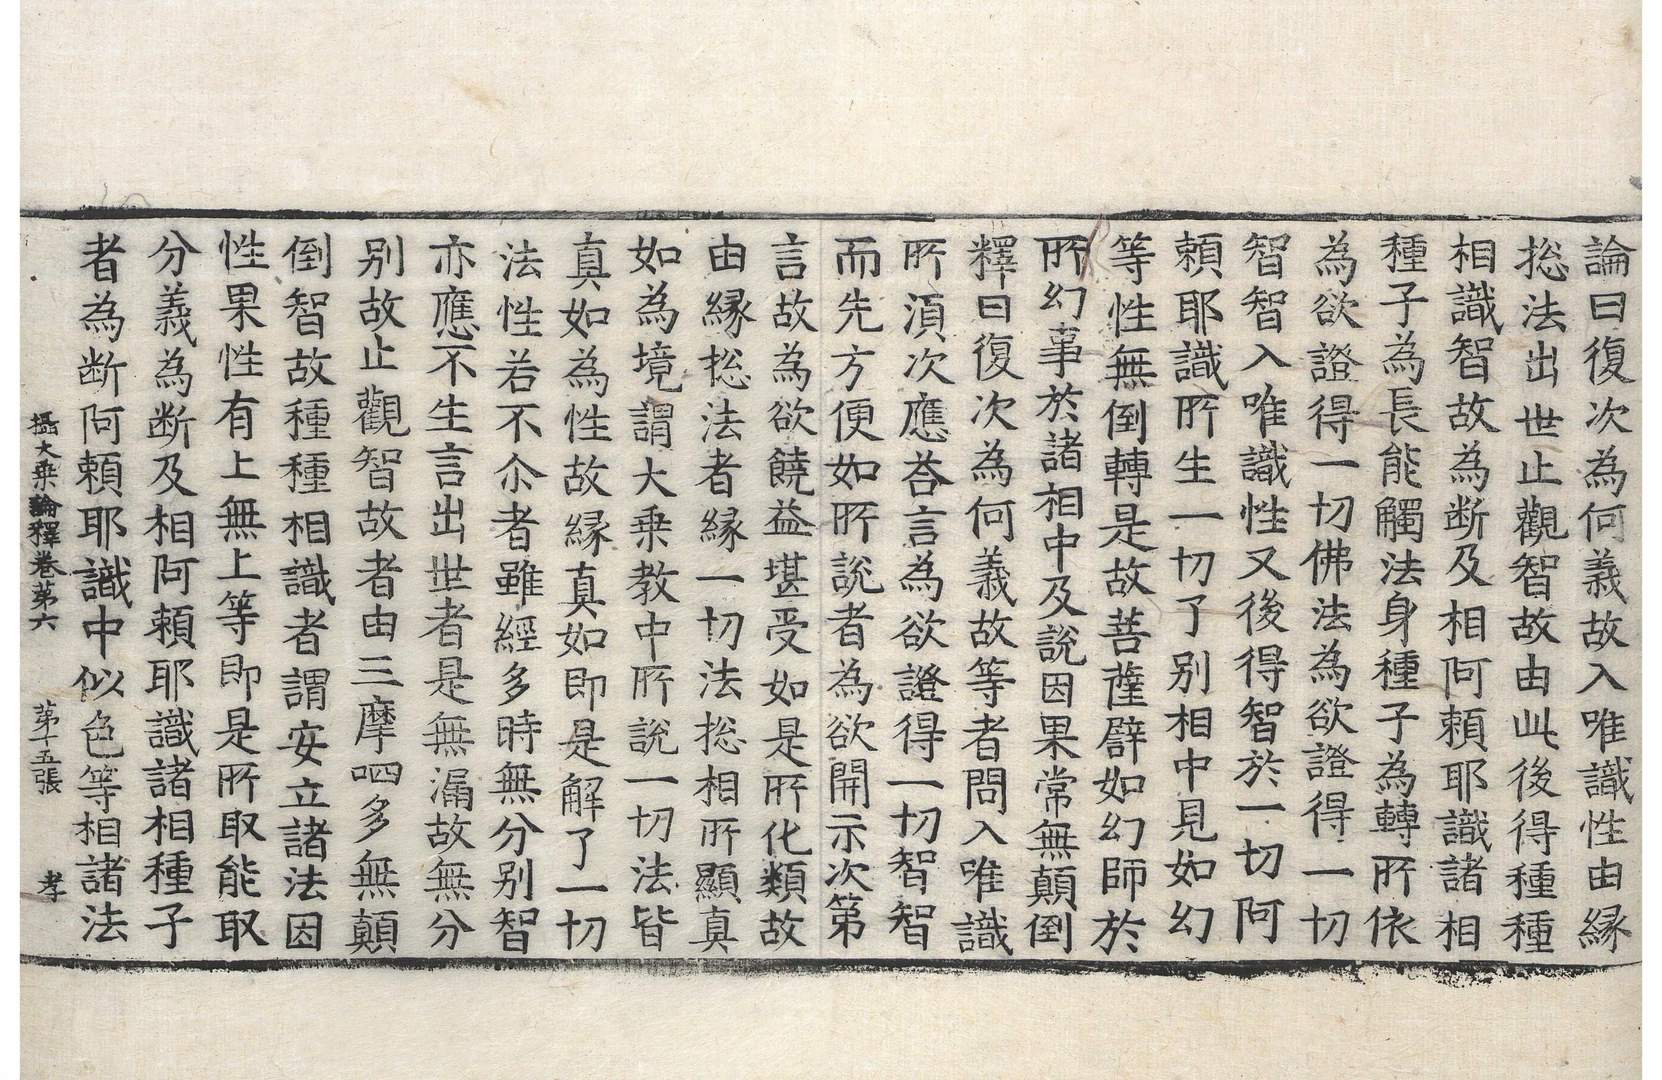 論曰復次為何義故入唯識性由緣
捴法出世止觀智故由此後得種種
相識智故為断及相阿賴耶識諸相
種子為長能觸法身種子為轉所依
為欲證得一切佛法為欲證得一切
智智入唯識性又後得智於一切阿
賴耶識所生一切了别相中見如幻
等性無倒轉是故菩薩譬如幻師於
所幻事於諸相中及說因果常無顛倒
釋曰復次為何義故等者問入唯識
所湏次應荅言為欲證得一切智智
而先方便如所說者為欲開示次第
言故為欲饒益堪受如是所化類故
由緣捴法者緣一切法捴相所顯真
如為境謂大乗教中所說一切法皆
真如為性故緣真如即是解了一切
法性若不尒者雖經多時無分别智
亦應不生言出世者是無漏故無分
别故止觀智故者由三摩呬多無顛
倒智故種種相識者謂安立諸法因
性果性有上無上等即是所取能取
分義為断及相阿賴耶識諸相種子
者為断阿賴耶識中似色等相諸法
攝大乗論釋卷第六 第十五張 孝